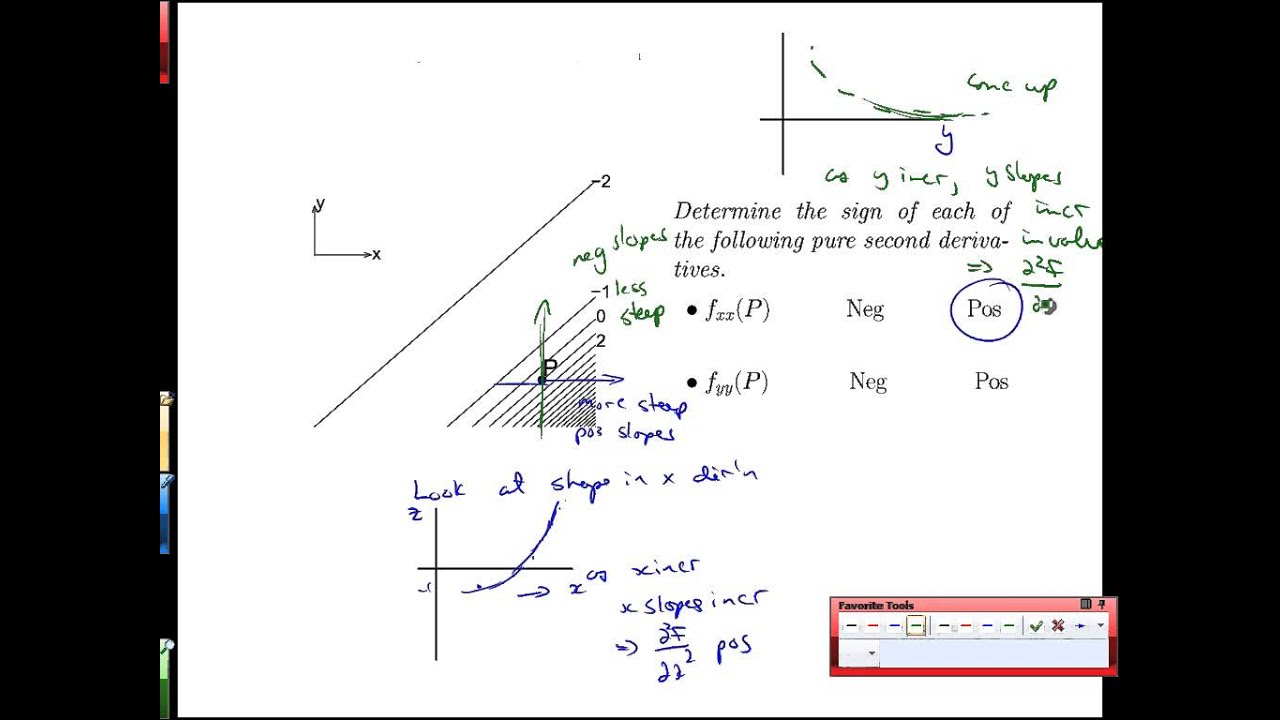 1
conc up
y
as y incr, y slopes
incr
in value
⇒ ∂²F
y
x
-2
Determine the sign of each of
the following pure second deriva-
tives.
neg slopes
less
steep
-1
0
2
P
• fxx(P) Neg Pos
• fyy(P) Neg Pos
more steep
pos slopes
Look at shape in x dir'n
z
-1
x
as x incr
x slopes incr
⇒ ∂²F/∂x² pos
Favorite Tools